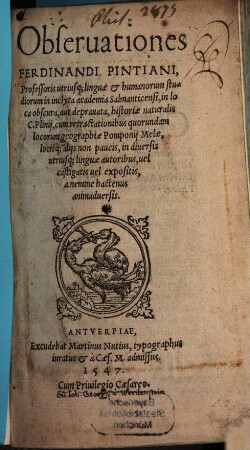 Phil: 2479
Obseruationes
FERDINANDI PINTIANI,
Professoris utriusq; linguæ & humanorum stu-
diorum in inclyta academia Salmanticensi, in lo
ca obscura, aut deprauata, historiæ naturalis
C. Plinij, cum retractationibus quorundam
locorum geographiæ Pomponij Melæ,
locisq; alijs non paucis, in diuersis
utriusq; linguæ autoribus, uel
castigatis uel expositis,
a nemine hactenus
animaduersis.
ANTVERPIAE,
Excudebat Martinus Nutius, typographus
iuratus & à Cæs. M. admissus.
1547.
Cum Priuilegio Cæsareo.
Bayerische
Staatsbibliothek
München